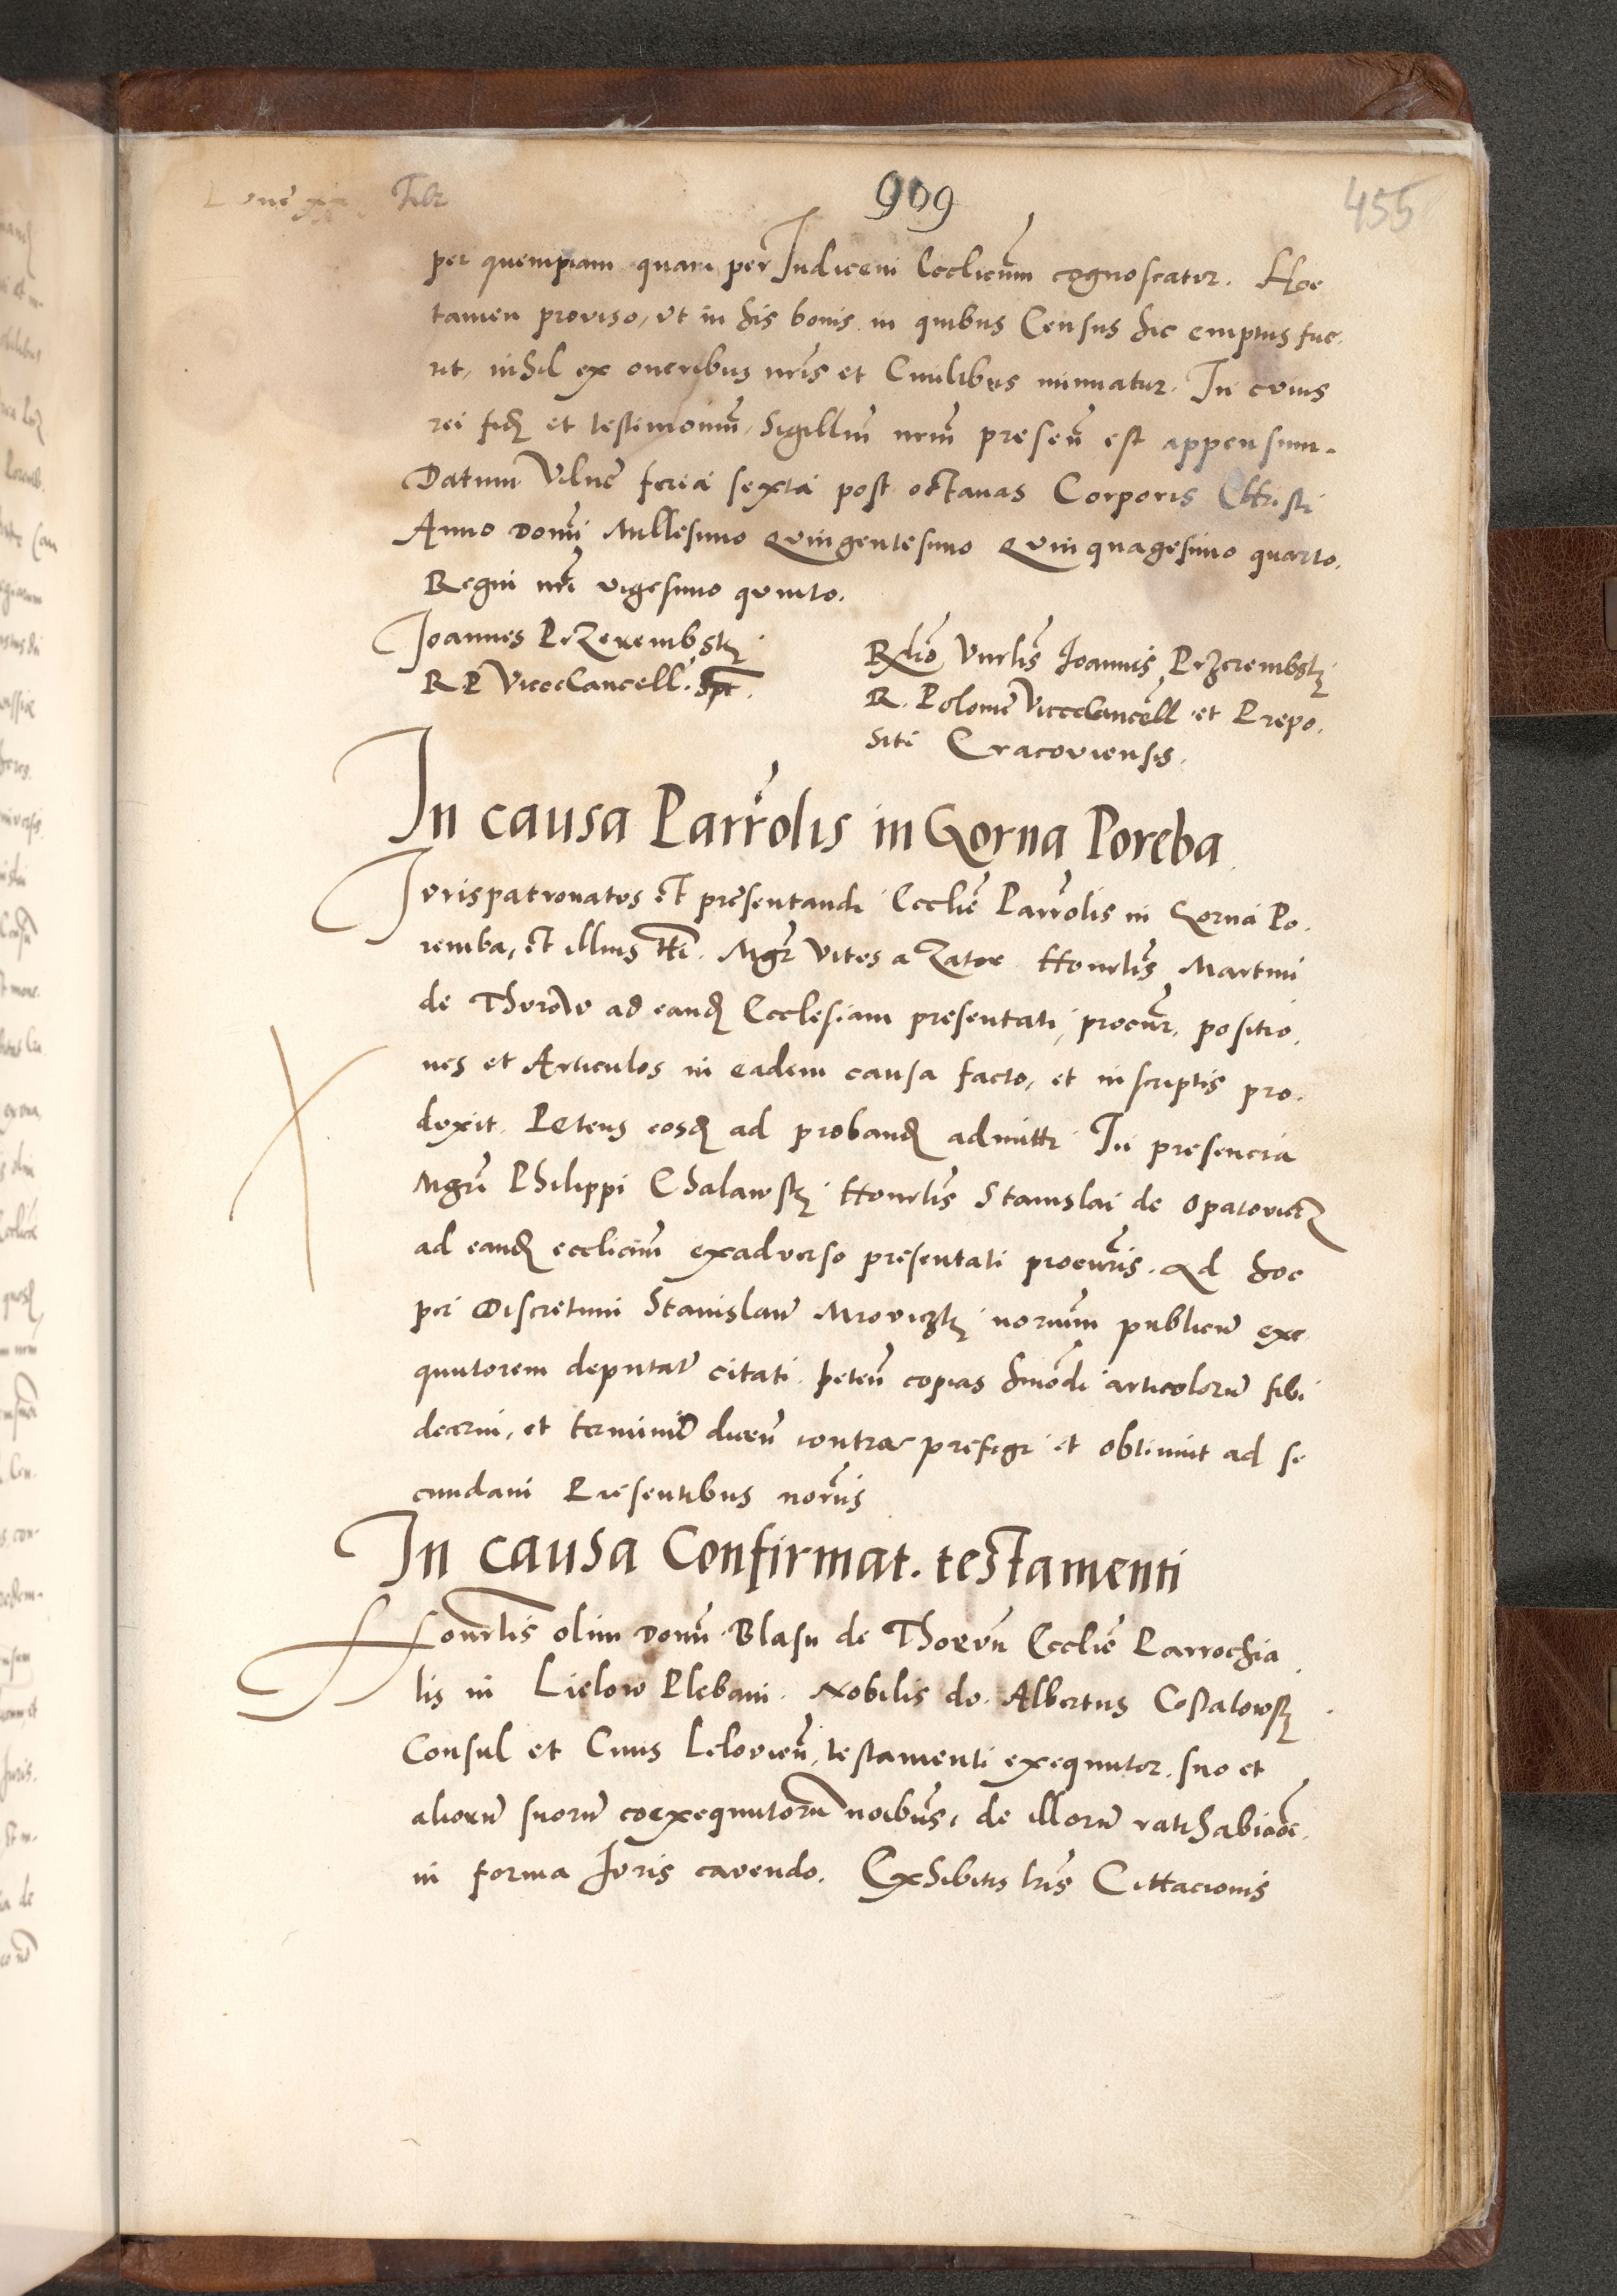 909
455
per quempiam quam per Iudicem Ecclicum cognoscatur. Hoc
tamen proviso, vt in his bonis in quibus Census hic emptus fue-
rit, nihil ex oneribus nris et Ciuilibus minuatur. In cuius
rei fidẽ et testimoniũ, Sigillũ nrm̃ presen̄ est appensum.
Datum Vilne feria sexta post octauas Corporis Christi
Anno Domi Millesimo Quingentesimo Quinquagesimo quarto.
Regni nri vigesimo quinto.
Joannes Przerembskj
R P ViceCancell. spt.
Rdio Vnrlis Joannis Przerembskj
R. Polonie ViceCancell et Prepo.
siti Cracoviensis.
In causa Parrolis in Gorna Poreba
Jurispatronatus et presentandi Ecclie Parrolis in Gorna Po.
remba, et illius tti. Mgr Vitus a Zator Honrlis Martini
de ad eand Ecclesiam presentati, procur. positio.
nes et Articulos in eadem causa facto, et in scriptis pro.
duxit. Petens eosd ad proband admitti In presencia
Mgri Philippi Chalawskj Honrlis Stanislai de Opatoviecz
ad eand eccliam exadverso presentati procuris. Ad hoc
per Discretum Stanislaum norium publicum exe
quutorem deputat citati. peten copias hmoi articulorum sibi
decerni, et terminum dicen contra prefigi et obtinuit ad se
cundam Presentibus noriis
In causa Confirmat. testamenti
Honrlis olim Domi Blasii de Thorun Ecclie Parrochia
lis in Lielow Plebani. Nobilis do. Albertus Costalowskj
Consul et Ciuis Lelovien, testamenti exequutor. suo et
aliorum suorum coexequutorum noibus, de illorum ratihabicoe
in forma Juris cavendo. Exhibitis lris Cittacionis